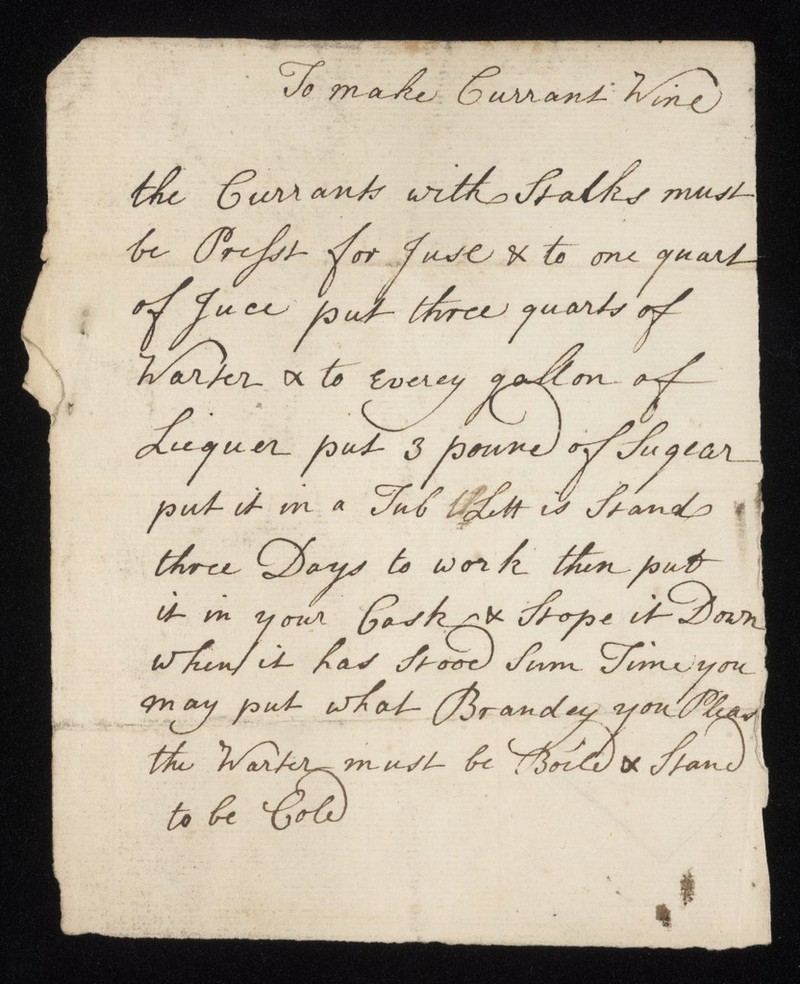 To make Currant Wine
the Currants with Stalks must
be Presst for Juse & to one quart
of Juce put three quarts of
Warter & to Everey gallon of
Liequer put 3 pound of Sugear
put it in a Tub Lett is Stand
three Days to work then put
it in your Cask & Stope it Down
when it has stood Sum Time you
may put what Brandey you Pleas
the Warter must be Boild & Stand
to be Cold